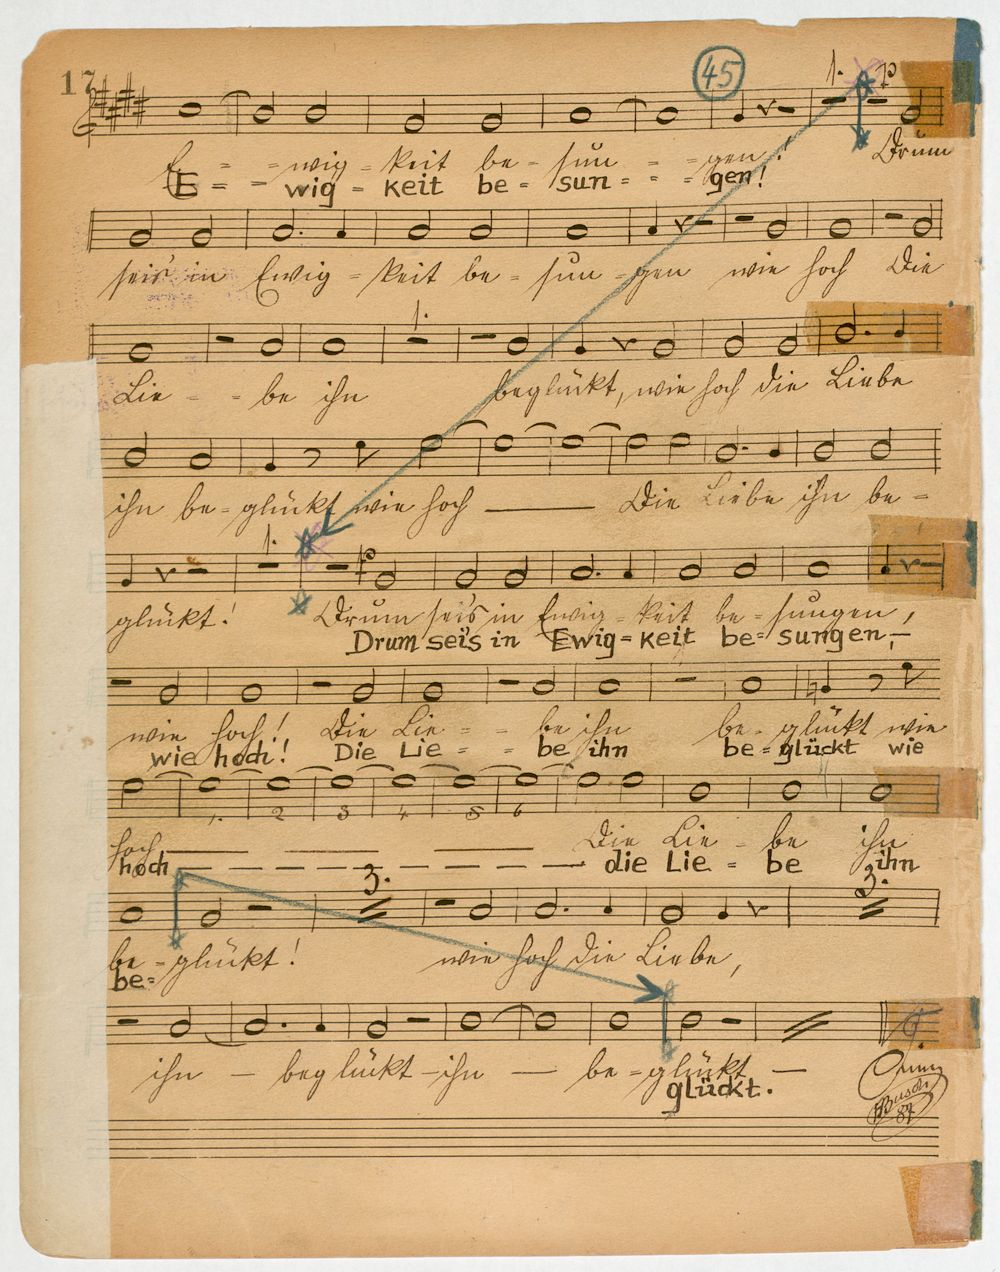 17 45 1. p
E - - wig - keit be - sun - - gen! Drum
E - - wig - keit be - sun - - - gen!
seis in Ewig - keit be - sun - gen wie hoch Die
1.
Lie - - be ihn beglückt, wie hoch die Liebe
ihn be - glückt wie hoch Die Liebe ihn be -
1. p
glückt! Drum seis in Ewig - keit be - sungen,
Drum seis in Ewig - keit be - sungen, -
wie hoch! Die Lie - - be ihn be - glückt wie
wie hoch! Die Lie - - be ihn be = glückt wie
1. 2 3 4 5 6
hoch Die Lie - be ihn
hoch - - - - - - - - die Lie - be ihn
3. 3.
be - glückt! wie hoch die Liebe,
be =
ihn - beglückt - ihn - be - glückt -
glückt.
Busch
87